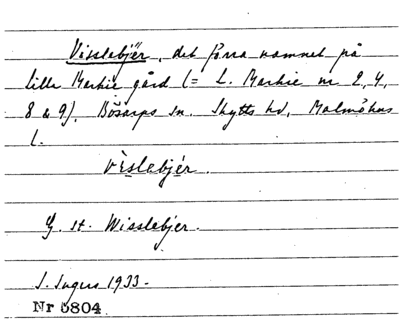 Visslebjër, det förra namnet på
lilla Markie gård (= L. Markie nr 2, 4,
8 & 9), Bösarps sn. Skytts hd, Malmöhus
l.
vìslebjér.
G. st. Wisslebjer.
S. Ingers 1933.
Nr 5804